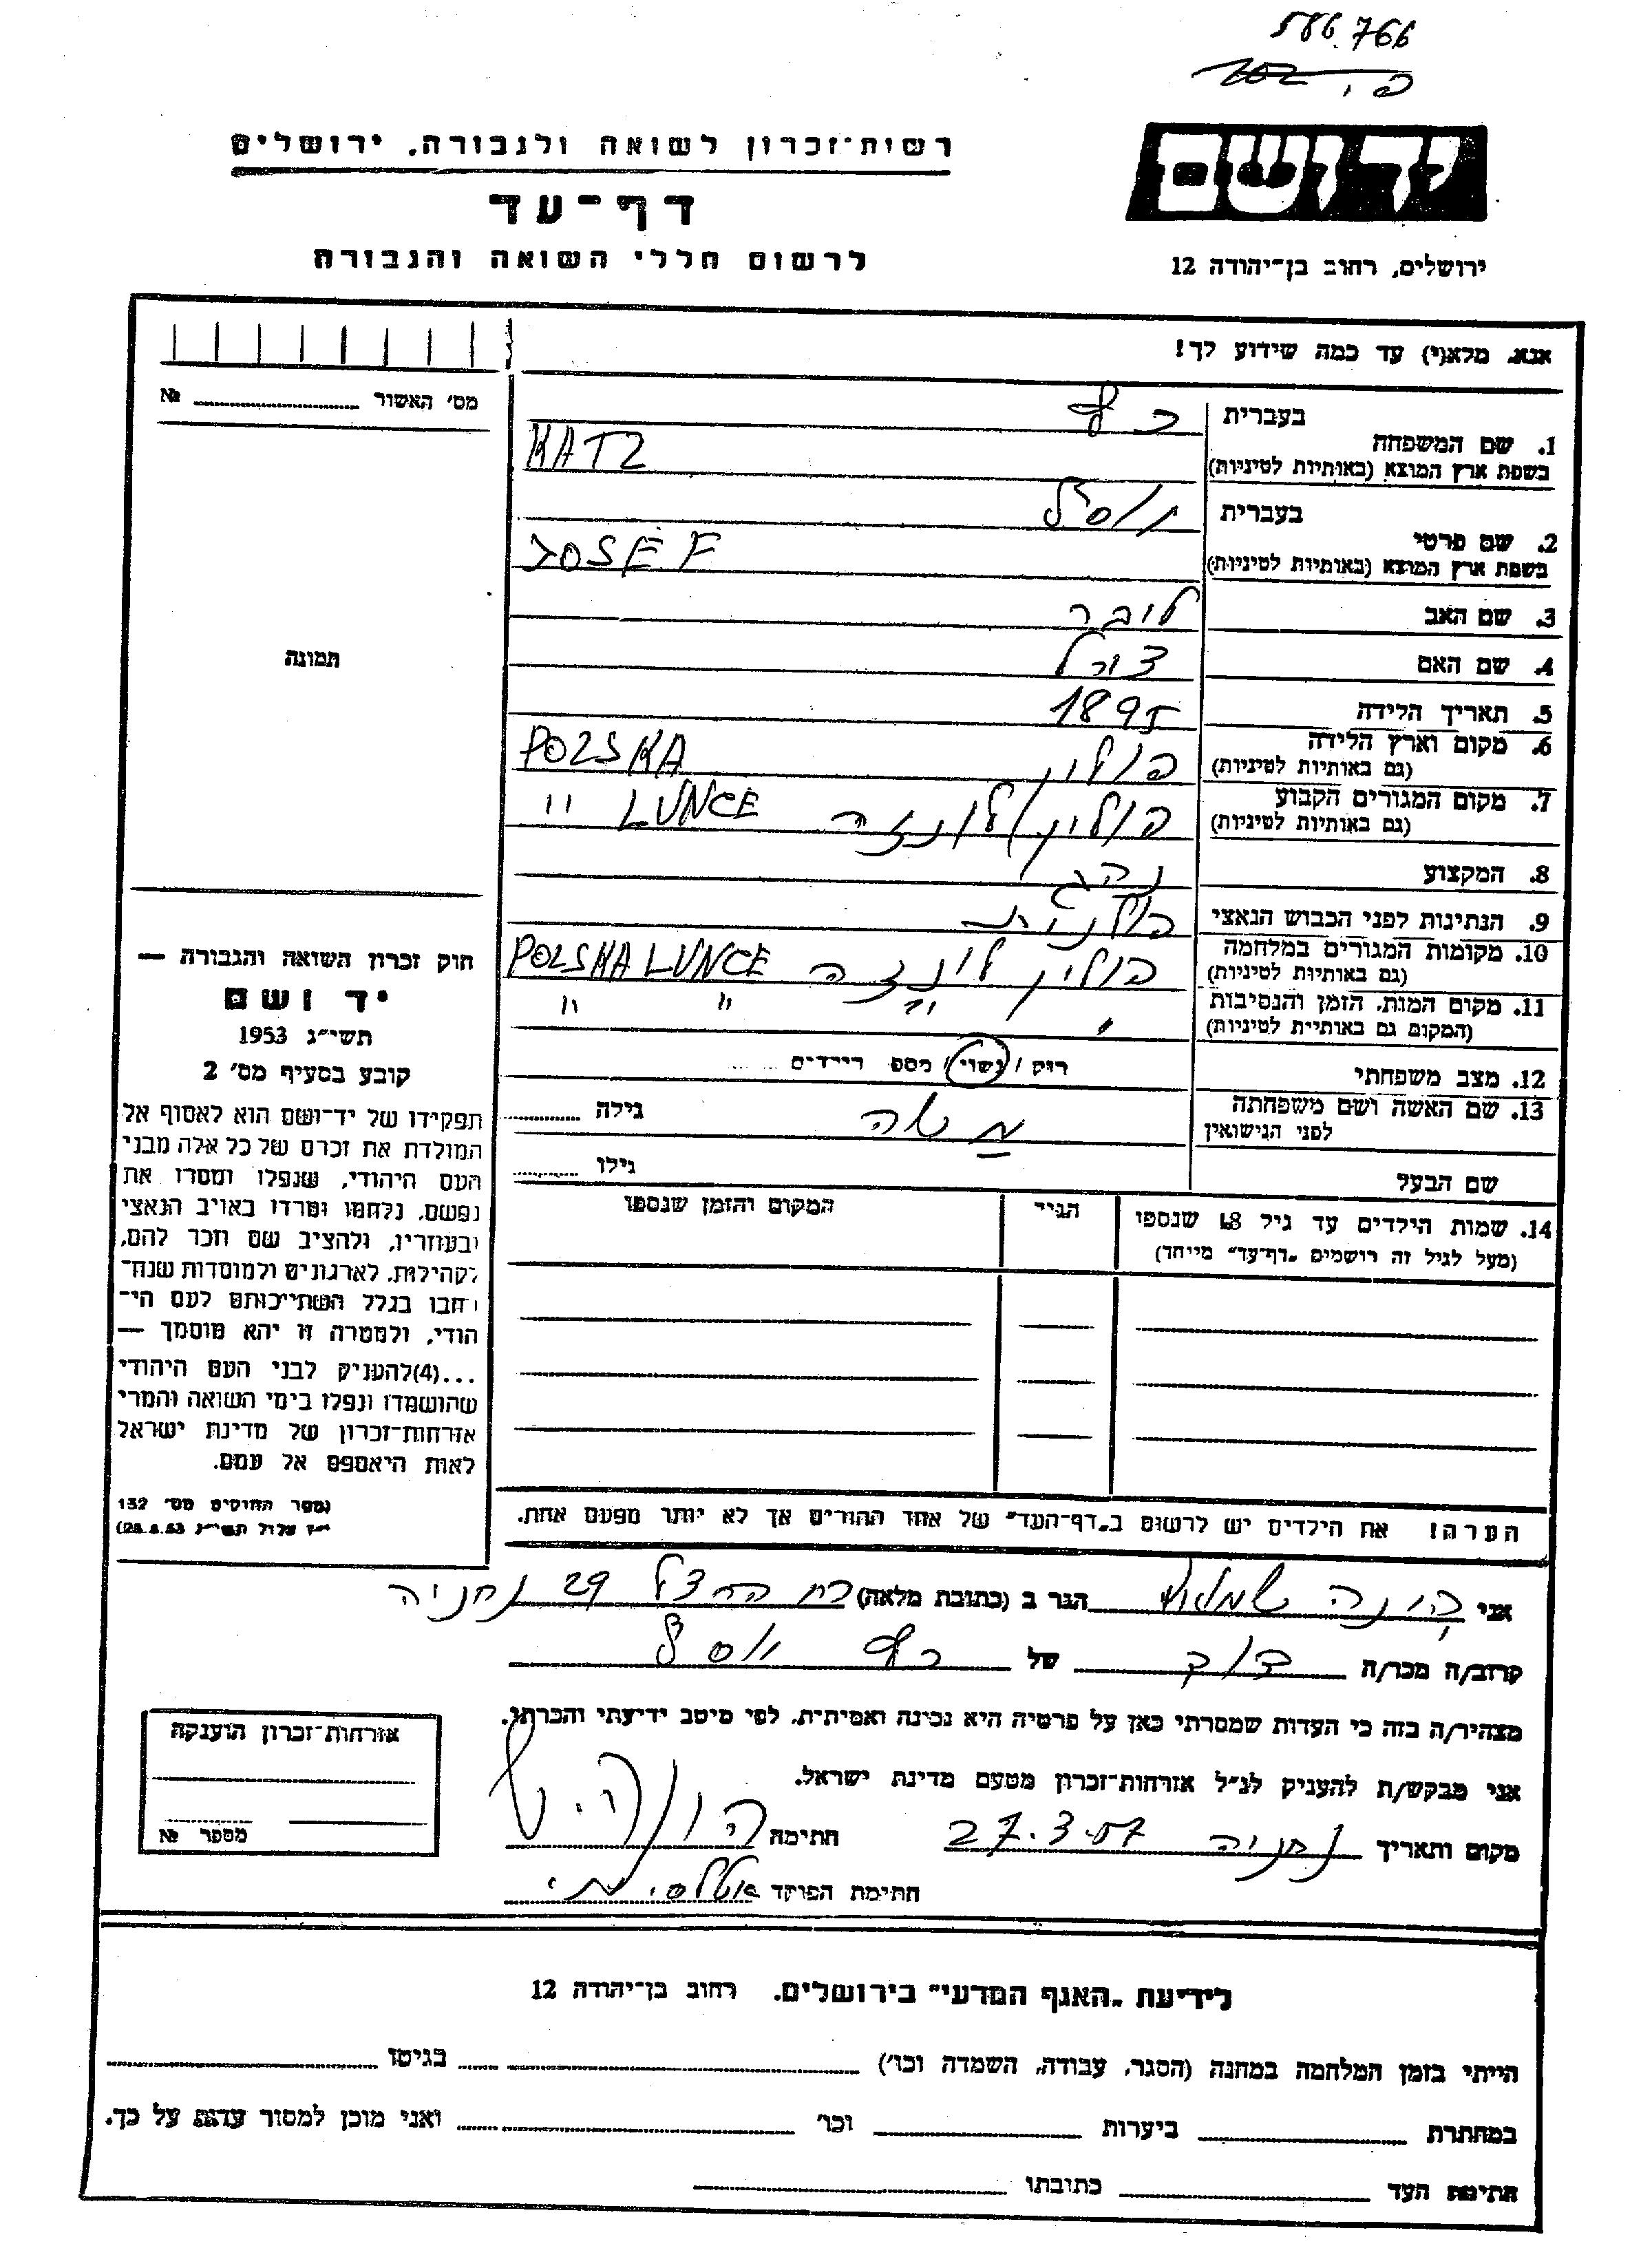 586.766
יד ושם
ירושלים, רחוב בן־יהודה 12
רשות־זכרון לשואה ולגבורה, ירושלים
דף־עד
לרשום חללי השואה והגבורה
אנא, מלא(י) עד כמה שידוע לך!
מס׳ האשור №
1. שם המשפחה
בעברית כץ
בשפת ארץ המוצא (באותיות לטיניות) KATZ
2. שם פרטי
בעברית יוסל
בשפת ארץ המוצא (באותיות לטיניות) JOSEF
3. שם האב ליבר
4. שם האם
5. תאריך הלידה 1895
6. מקום וארץ הלידה פולין POLSKA
(גם באותיות לטיניות)
7. מקום המגורים הקבוע פולין לונזה LUNCE "
(גם באותיות לטיניות)
8. המקצוע נהג
9. הנתינות לפני הכבוש הנאצי פולנית
10. מקומות המגורים במלחמה פולין לונזה POLSKA LUNCE
(גם באותיות לטיניות)
11. מקום המות, הזמן והנסיבות " " "
(המקום גם באותיות לטיניות)
12. מצב משפחתי רוק / נשוי / מספר ילדים
13. שם האשה ושם משפחתה גילה
לפני הנישואין
שם הבעל גילו
14. שמות הילדים עד גיל 18 שנספו הגיל המקום והזמן שנספו
(מעל לגיל זה רושמים „דף־עד" מיוחד)
הערה! את הילדים יש לרשום ב„דף־העד" של אחד ההורים אך לא יותר מפעם אחת.
תמונה
חוק זכרון השואה והגבורה —
יד ושם
תשי״ג 1953
קובע בסעיף מס׳ 2
תפקידו של יד־ושם הוא לאסוף אל
המולדת את זכרם של כל אלה מבני
העם היהודי, שנפלו ומסרו את
נפשם, נלחמו ומרדו באויב הנאצי
ובעוזריו, ולהציב שם וזכר להם,
לקהילות, לארגונים ולמוסדות שנח־
רבו בגלל השתייכותם לעם הי־
הודי, ולמטרה זו יהא מוסמך —
...(4)להעניק לבני העם היהודי
שהושמדו ונפלו בימי השואה והמרי
אזרחות־זכרון של מדינת ישראל
לאות היאספם אל עמם.
(ספר החוקים מס׳ 132
י״ז אלול תשי״ג 28.8.53)
אני הגר ב (כתובת מלאה) 29 נתניה
קרוב/ה מכר/ה של כץ יוסל
מצהיר/ה בזה כי העדות שמסרתי כאן על פרטיה היא נכונה ואמיתית, לפי מיטב ידיעתי והכרתי.
אני מבקש/ת להעניק לנ״ל אזרחות־זכרון מטעם מדינת ישראל.
מקום ותאריך נתניה 27.3.57 חתימה
חתימת הפוקד
אזרחות־זכרון הוענקה
מספר №
לידיעת „האגף המדעי" בירושלים, רחוב בן־יהודה 12
הייתי בזמן המלחמה במחנה (הסגר, עבודה, השמדה וכו׳) בגיטו
במחתרת ביערות וכו׳ ואני מוכן למסור עדות על כך.
חתימת העד כתובתו